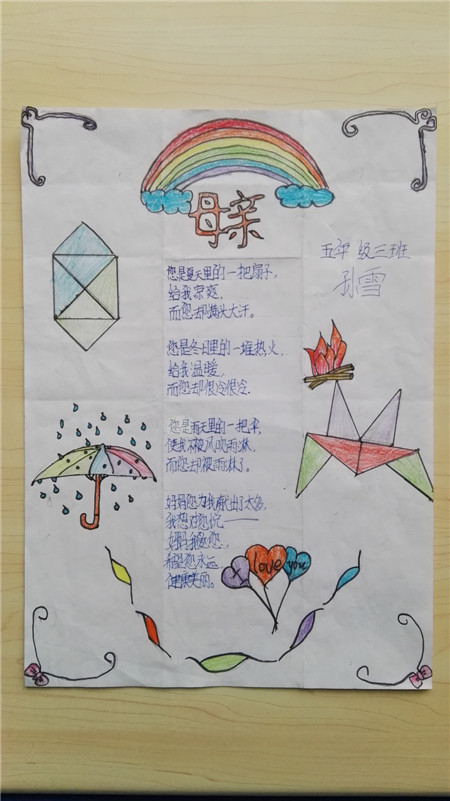 母亲
五年级三班
孙雪
您是夏天里的一把扇子,
给我凉爽,
而您却满头大汗。
您是冬日里的一堆热火,
给我温暖,
而您却很冷很冷.
您是雨天里的一把伞,
使我不被风吹雨淋,
而您却被雨淋了。
妈妈您为我献出了太多,
我想对您说——
妈妈我爱您,
希望您永远
健康美丽。
I love you